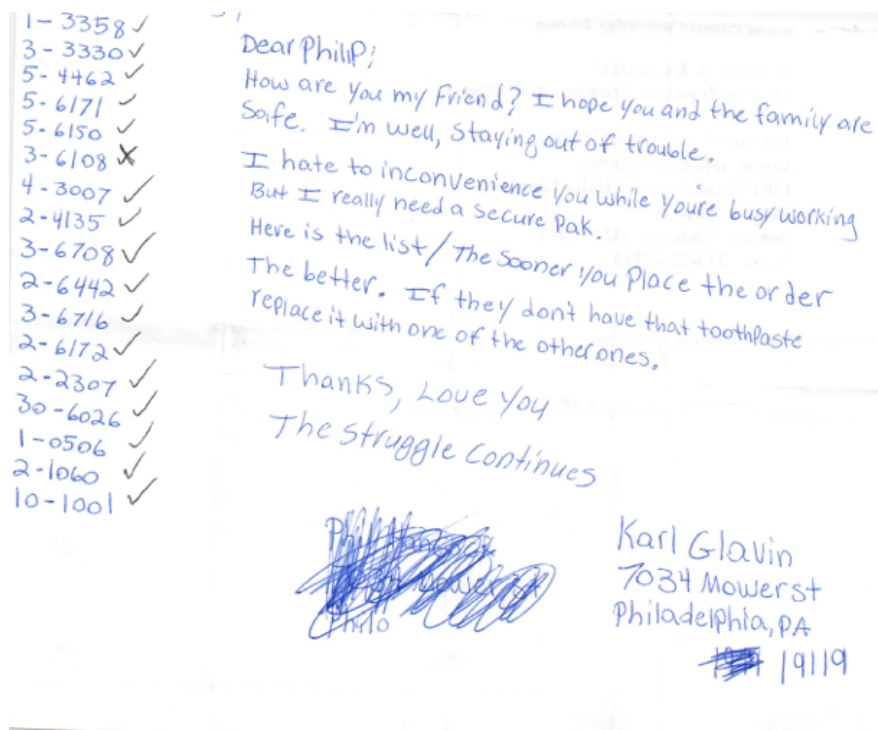 1-3358 ✓
3-3330 ✓
5-4462 ✓
5-6171 ✓
5-6150 ✓
3-6108 X
4-3007 ✓
2-4135 ✓
3-6708 ✓
2-6442 ✓
3-6716 ✓
2-6172 ✓
2-2307 ✓
30-6026 ✓
1-0506 ✓
2-1060 ✓
10-1001 ✓
Dear Philip;
How are you my Friend? I hope you and the family are
Safe. I'm well, staying out of trouble.
I hate to inconvenience you while youre busy working
But I really need a secure Pak.
Here is the list/The sooner you Place the order
The better. If they don't have that toothpaste
replace it with one of the other ones.
Thanks, Love you
The Struggle Continues
Karl Glavin
7034 Mower st
Philadelphia, PA
19119